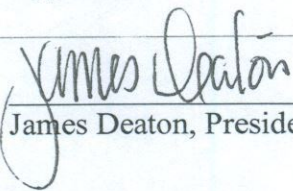 James Deaton
James Deaton, Preside